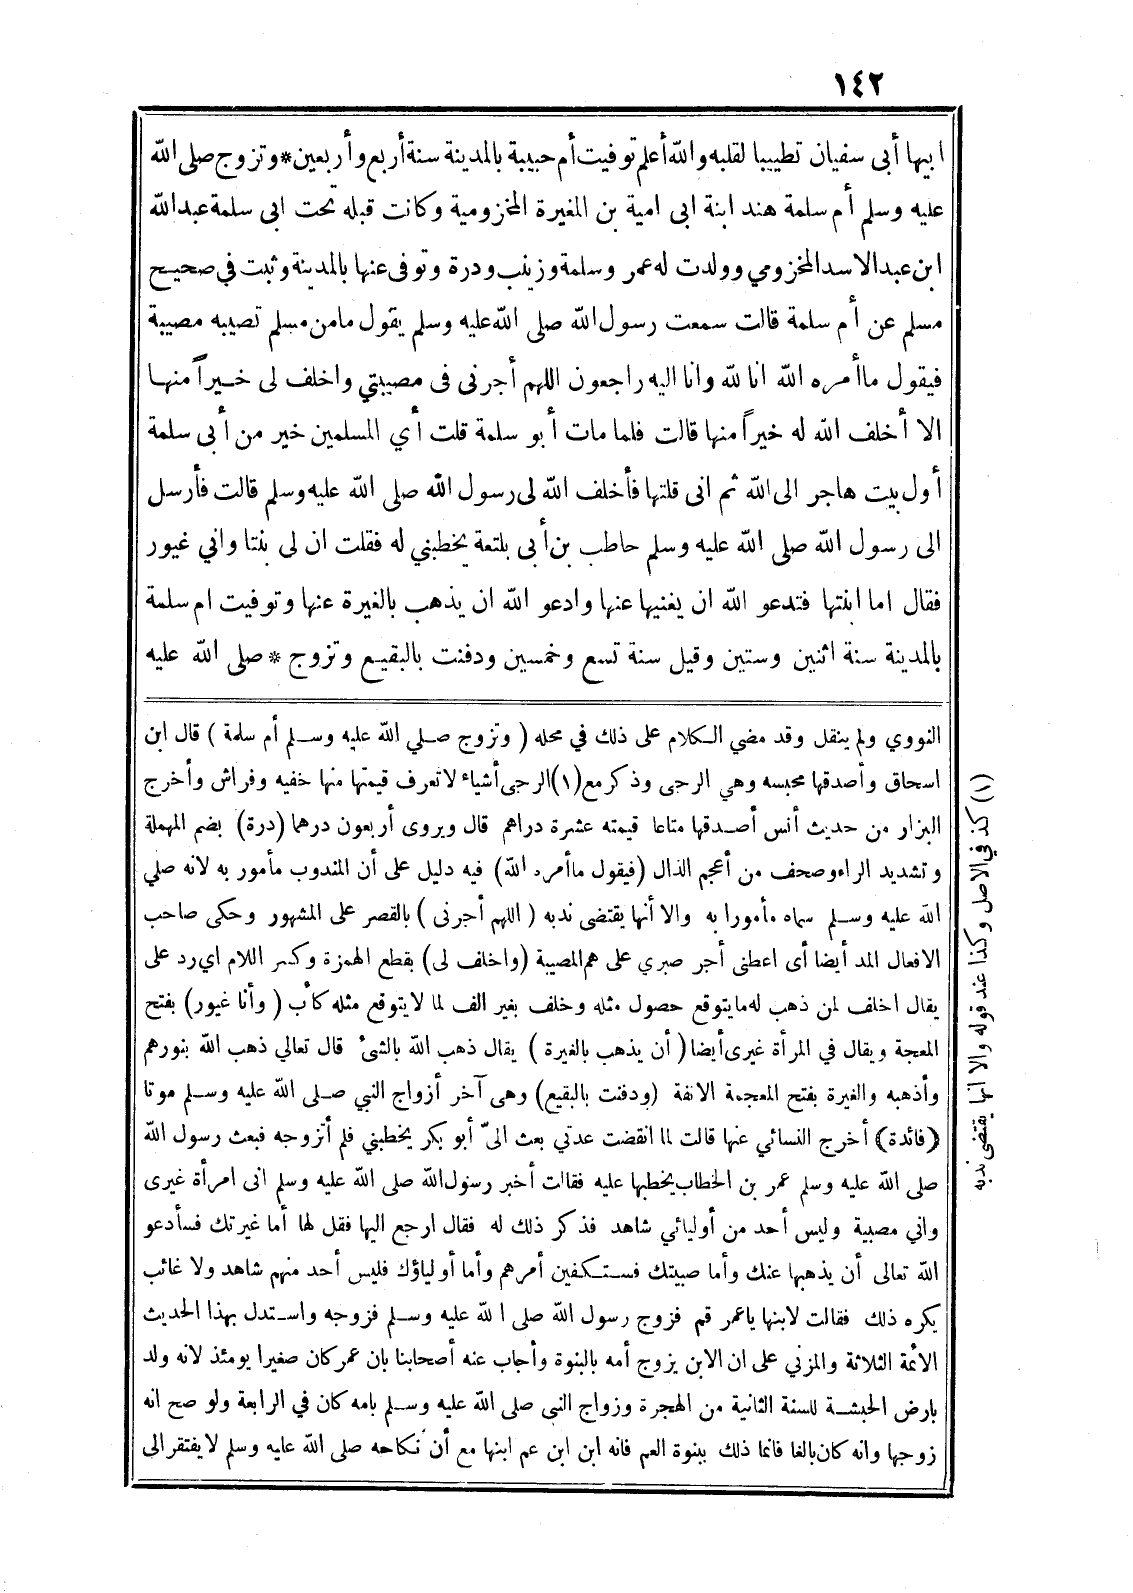 ١٤٢
ابيها أبى سفيان تطييبا لقلبه والله أعلم توفيت أم حبيبة بالمدينة سنة أربع وأربعين * وتزوج صلى الله
عليه وسلم أم سلمة هند ابنة ابى امية بن المغيرة المخزومية وكانت قبله تحت ابى سلمة عبدالله
ابن عبدالاسد المخزومي وولدت له عمر وسلمة وزينب ودرة وتوفى عنها بالمدينة وثبت في صحيح
مسلم عن أم سلمة قالت سمعت رسول الله صلى الله عليه وسلم يقول مامن مسلم تصيبه مصيبة
فيقول ماأمره الله انا لله وانا اليه راجعون اللهم أجرنى فى مصيبتي واخلف لى خيراً منها
الا أخلف الله له خيراً منها قالت فلما مات أبو سلمة قلت أي المسلمين خير من أبى سلمة
أول بيت هاجر الى الله ثم انى قلتها فأخلف الله لى رسول الله صلى الله عليه وسلم قالت فأرسل
الى رسول الله صلى الله عليه وسلم حاطب بن أبى بلتعة يخطبني له فقلت ان لى بنتا واني غيور
فقال اما ابنتها فتدعو الله ان يغنيها عنها وادعو الله ان يذهب بالغيرة عنها وتوفيت ام سلمة
بالمدينة سنة اثنين وستين وقيل سنة تسع وخمسين ودفنت بالبقيع وتزوج * صلى الله عليه
النووي ولم ينقل وقد مضي الكلام على ذلك في محله ( وتزوج صلي الله عليه وسلم أم سلمة ) قال ابن
اسحاق وأصدقها محبسه وهي الرحى وذكر مع (١) الرحى أشياء لاتعرف قيمتها منها خفيه وفراش وأخرج
البزار من حديث أنس أصدقها متاعا قيمته عشرة دراهم قال ويروى أربعون درهما (درة) بضم المهملة
وتشديد الراء وصحف من أعجم الذال (فيقول ماأمره الله) فيه دليل على أن المندوب مأمور به لانه صلي
الله عليه وسلم سماه مأمورا به والا أنها يقتضى ندبه ( اللهم أجرنى ) بالقصر على المشهور وحكى صاحب
الافعال المد أيضا أى اعطنى أجر صبري على هم المصيبة (واخلف لى) بقطع الهمزة وكسر اللام اي رد على
يقال اخلف لمن ذهب له مايتوقع حصول مثله وخلف بغير الف لما لايتوقع مثله كأب ( وأنا غيور) بفتح
المعجة ويقال في المرأة غيرى أيضا ( أن يذهب بالغيرة ) يقال ذهب الله بالشئ قال تعالي ذهب الله بنورهم
وأذهبه والغيرة بفتح المعجمة الانفة (ودفنت بالبقيع) وهى آخر أزواج النبي صلى الله عليه وسلم موتا
(فائدة) أخرج النسائي عنها قالت لما انقضت عدتي بعث الىّ أبو بكر يخطبني فلم أتزوجه فبعث رسول الله
صلى الله عليه وسلم عمر بن الخطاب يخطبها عليه فقالت أخبر رسول الله صلى الله عليه وسلم انى امرأة غيرى
واني مصبية وليس أحد من أوليائي شاهد فذكر ذلك له فقال ارجع اليها فقل لها أما غيرتك فسأدعو
الله تعالى أن يذهبها عنك وأما صبيتك فستكفين أمرهم وأما أولياؤك فليس أحد منهم شاهد ولا غائب
يكره ذلك فقالت لابنها ياعمر قم فزوج رسول الله صلى الله عليه وسلم فزوجه واستدل بهذا الحديث
الائمة الثلاثة والمزني على ان الابن يزوج أمه بالبنوة وأجاب عنه أصحابنا بان عمر كان صغيرا يومئذ لانه ولد
بارض الحبشة للسنة الثانية من الهجرة وزواج النبى صلى الله عليه وسلم بامه كان في الرابعة ولو صح انه
زوجها وانه كان بالغا فانما ذلك ببنوة العم فانه ابن ابن عم ابنها مع أن نكاحه صلى الله عليه وسلم لايفتقر الى
(١) كذ في الاصل وكذا عند قوله والا انها يقتضى ندبه